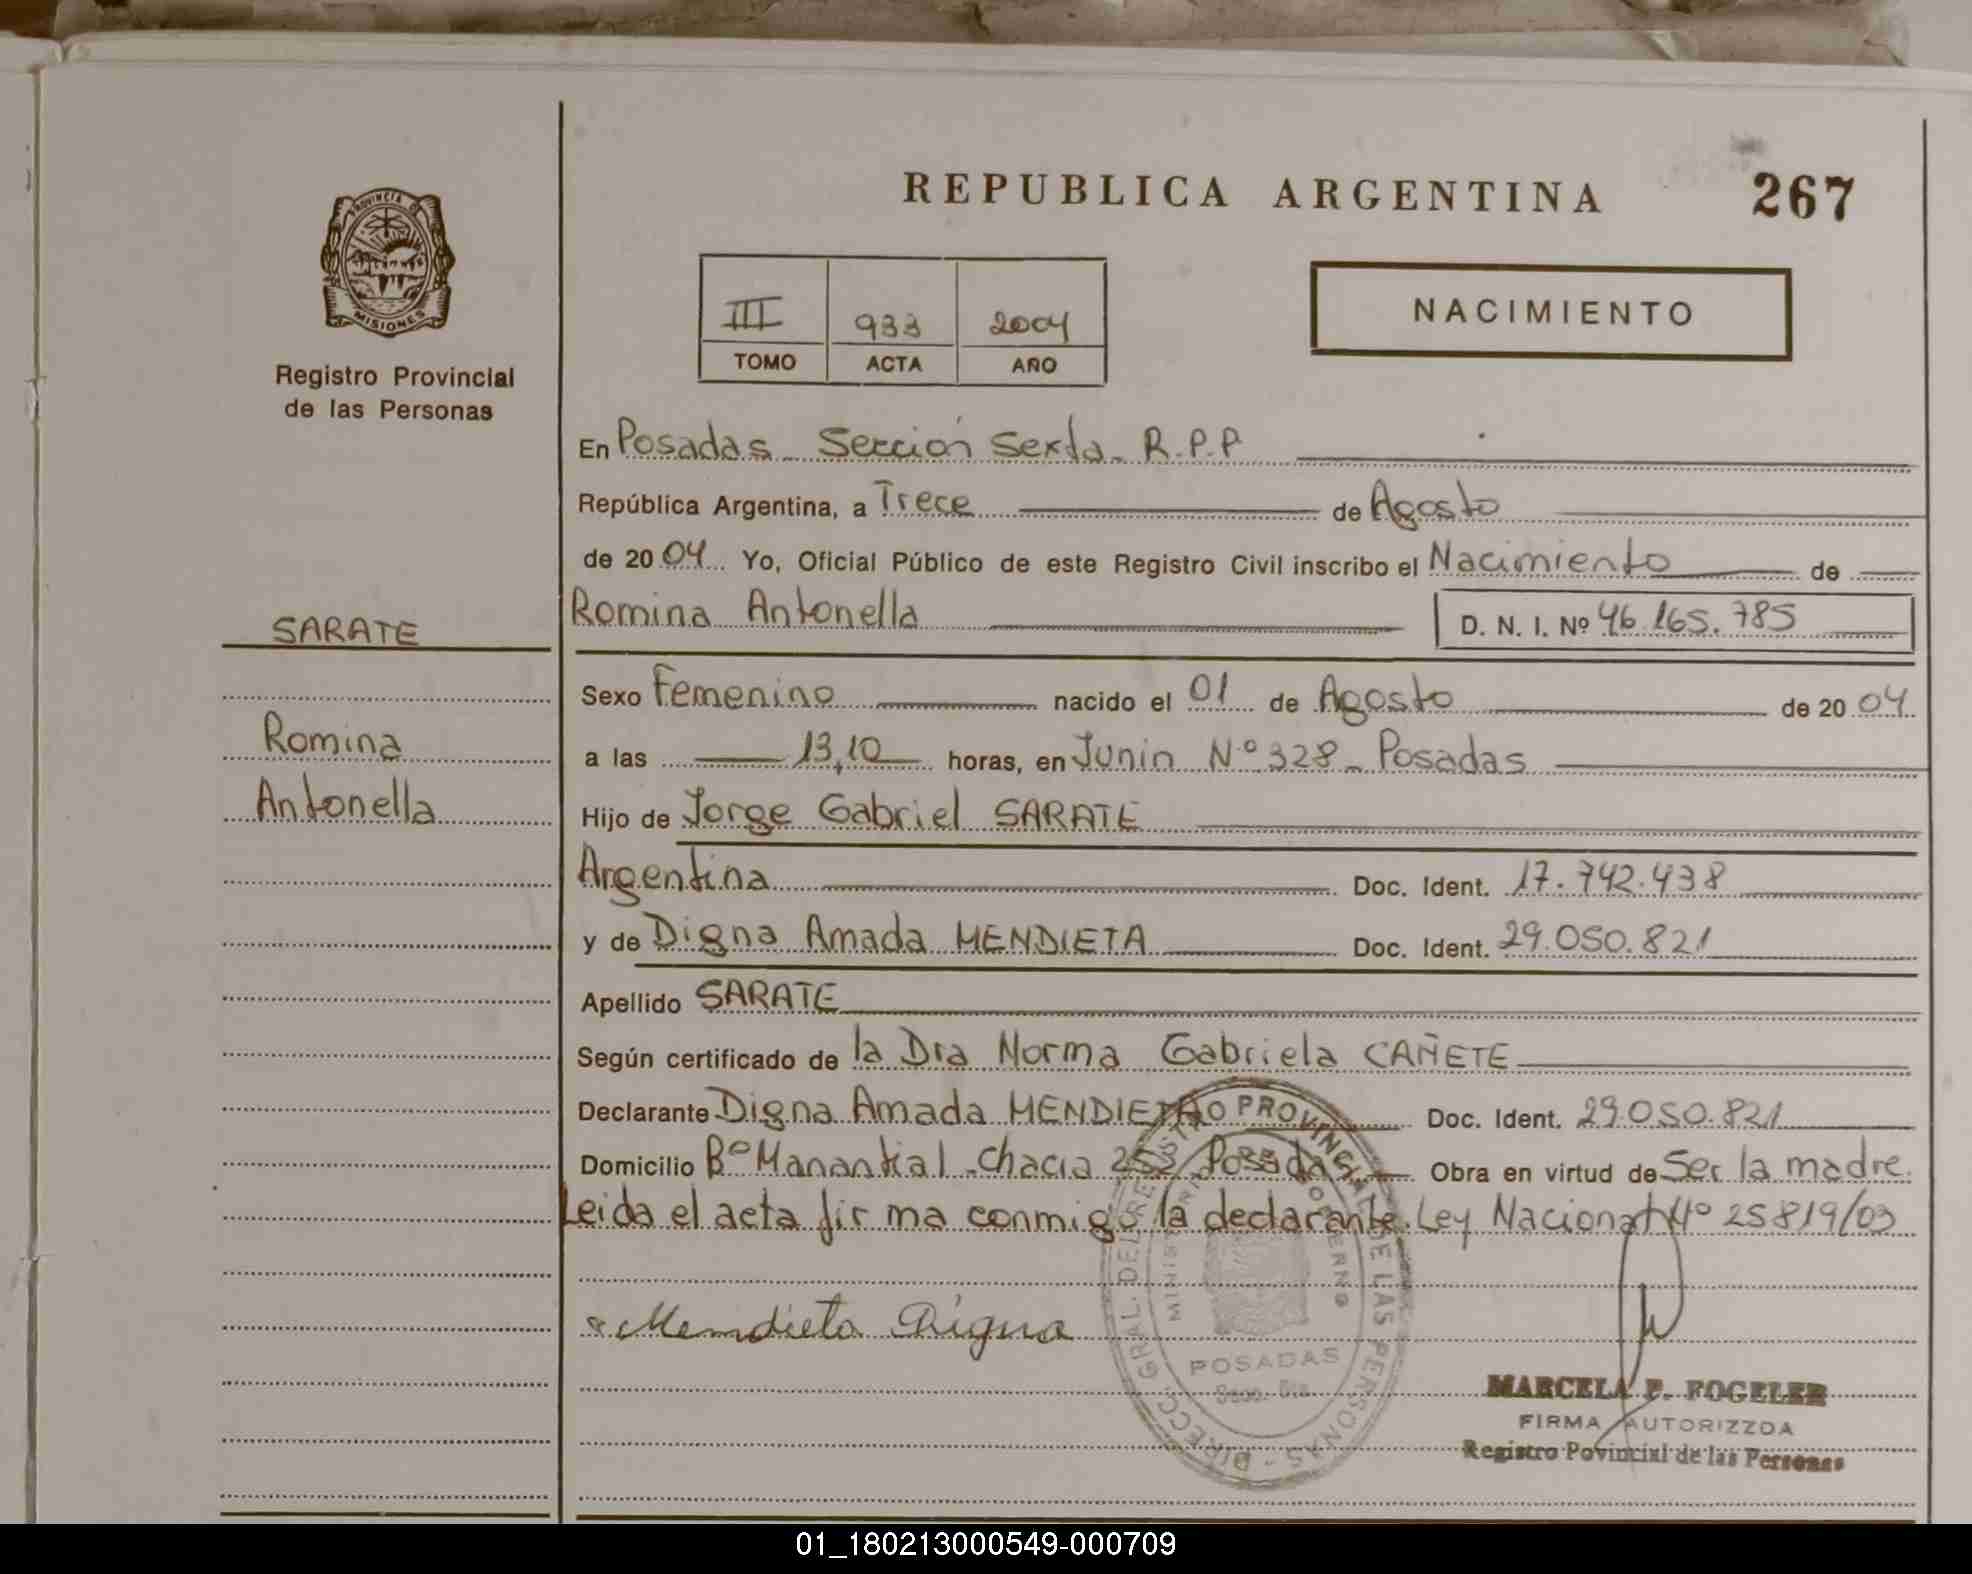 REPUBLICA ARGENTINA
267
PROVINCIA DE
MISIONES
Registro Provincial
de las Personas
III 933 2004
TOMO ACTA AÑO
NACIMIENTO
En Posadas - Sección Sexta - R.P.P
República Argentina, a Trece de Agosto
de 2004 Yo, Oficial Público de este Registro Civil inscribo el Nacimiento de
Romina Antonella
D. N. I. Nº 46.165.785
SARATE
Romina
Antonella
Sexo Femenino nacido el 01 de Agosto de 2004
a las 13,10 horas, en Junin Nº 328 - Posadas
Hijo de Jorge Gabriel SARATE
Argentina Doc. Ident. 17.742.438
y de Digna Amada MENDIETA Doc. Ident. 29.050.821
Apellido SARATE
Según certificado de la Dra Norma Gabriela CAÑETE
Declarante Digna Amada MENDIETA Doc. Ident. 29.050.821
Domicilio Bº Manantial - chacra 252 Posadas Obra en virtud de Ser la madre.
Leida el acta firma conmigo la declarante. Ley Nacional Nº 25819/03
Mendieta Digna
DIRECC. GRAL. DEL REGISTRO PROVINCIAL DE LAS PERSONAS
POSADAS
MARCELA F. FOGELER
FIRMA AUTORIZZDA
Registro Povincial de las Personas
01_180213000549-000709